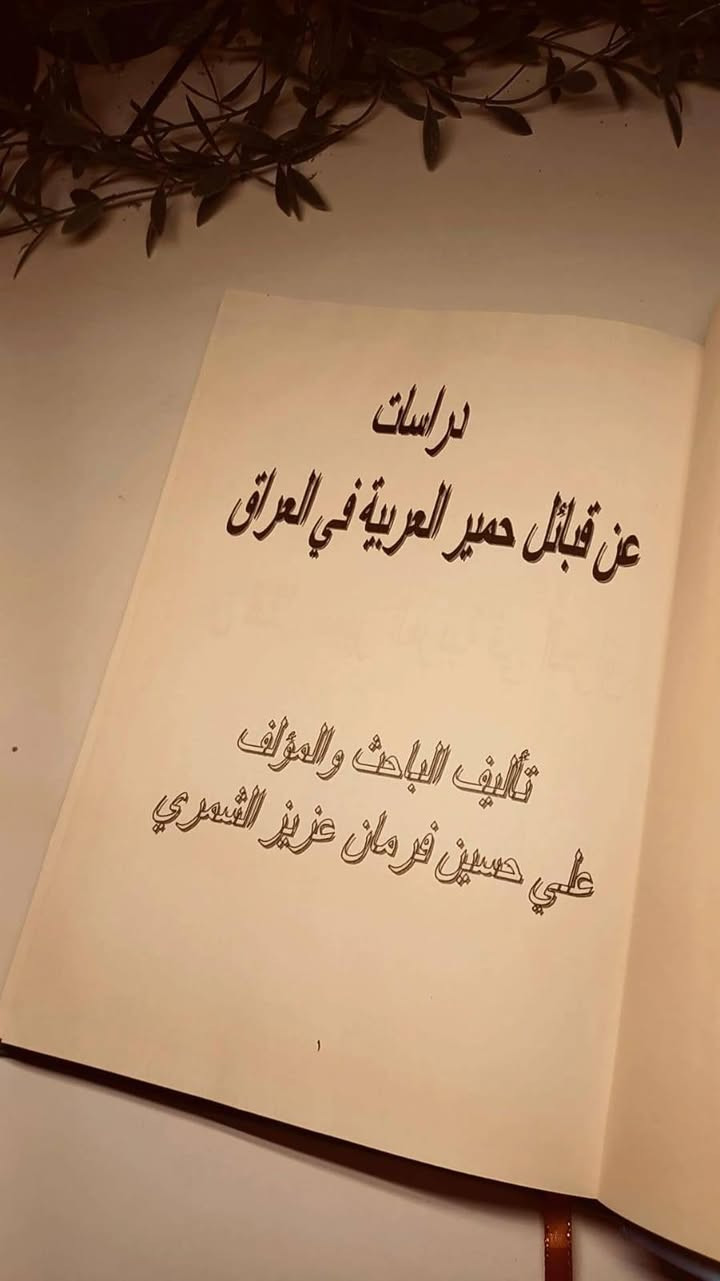 دراسات
عن قبائل حمير العربية في العراق
تأليف الباحث والمؤلف
علي حسين فرمان عزيز الشمري
١